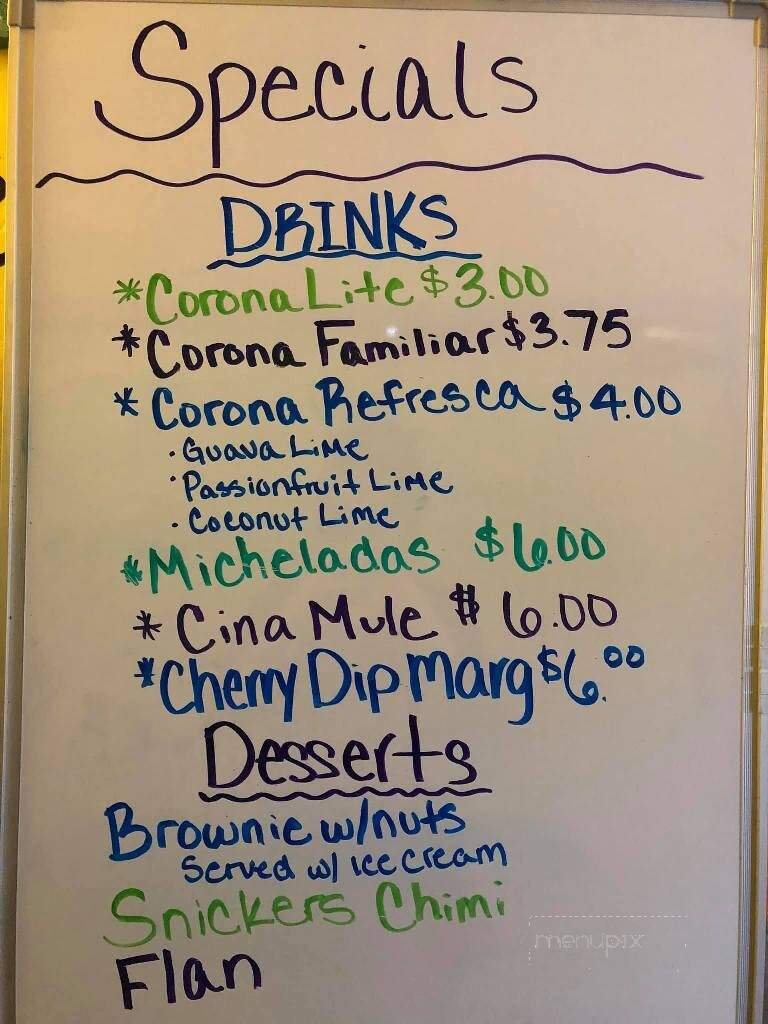 Specials
DRINKS
*Corona Lite $3.00
*Corona Familiar $3.75
*Corona Refresca $4.00
·Guava Lime
·Passionfruit Lime
·Coconut Lime
*Micheladas $6.00
*Cina Mule $6.00
*Cherry Dip Marg $6.00
Desserts
Brownie w/nuts
Served w/ ice cream
Snickers Chimi
menupix
Flan